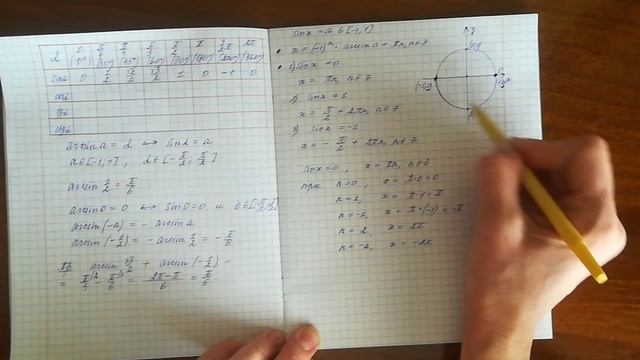 α 0 π/6 π/4 π/3 π/2 π 3/2π 2π
(0°) (30°) (45°) (60°) (90°) (180°) (270°) (360°)
sinα 0 1/2 √2/2 √3/2 1 0 -1 0
cosα
tgα
ctgα
arcsin a = α ↔ sin α = a
a∈[-1;1], α∈[-π/2; π/2]
arcsin 1/2 = π/6
arcsin 0 = 0 ↔ sin 0 = 0 и 0∈[-π/2; π/2]
arcsin(-a) = - arcsin a
arcsin(-1/2) = - arcsin 1/2 = - π/6
Пр arcsin √3/2 + arcsin(-1/2) =
= π/3 - π/6 = 2π-π/6 = π/6.
sin x = a ∈[-1,1]
• x = (-1)ⁿ · arcsin a + πn, n∈Z
• 1) sin x = 0
x = πn, n∈Z
2) sin x = 1
x = π/2 + 2πn, n∈Z
3) sin x = -1
x = - π/2 + 2πn, n∈Z
sin x = 0, x = πn, n∈Z
при n=0, x = π·0 = 0
n=1, x = π·1 = π
n=-1, x = π·(-1) = -π
n=2, x = 2π
n=-2, x = -2π